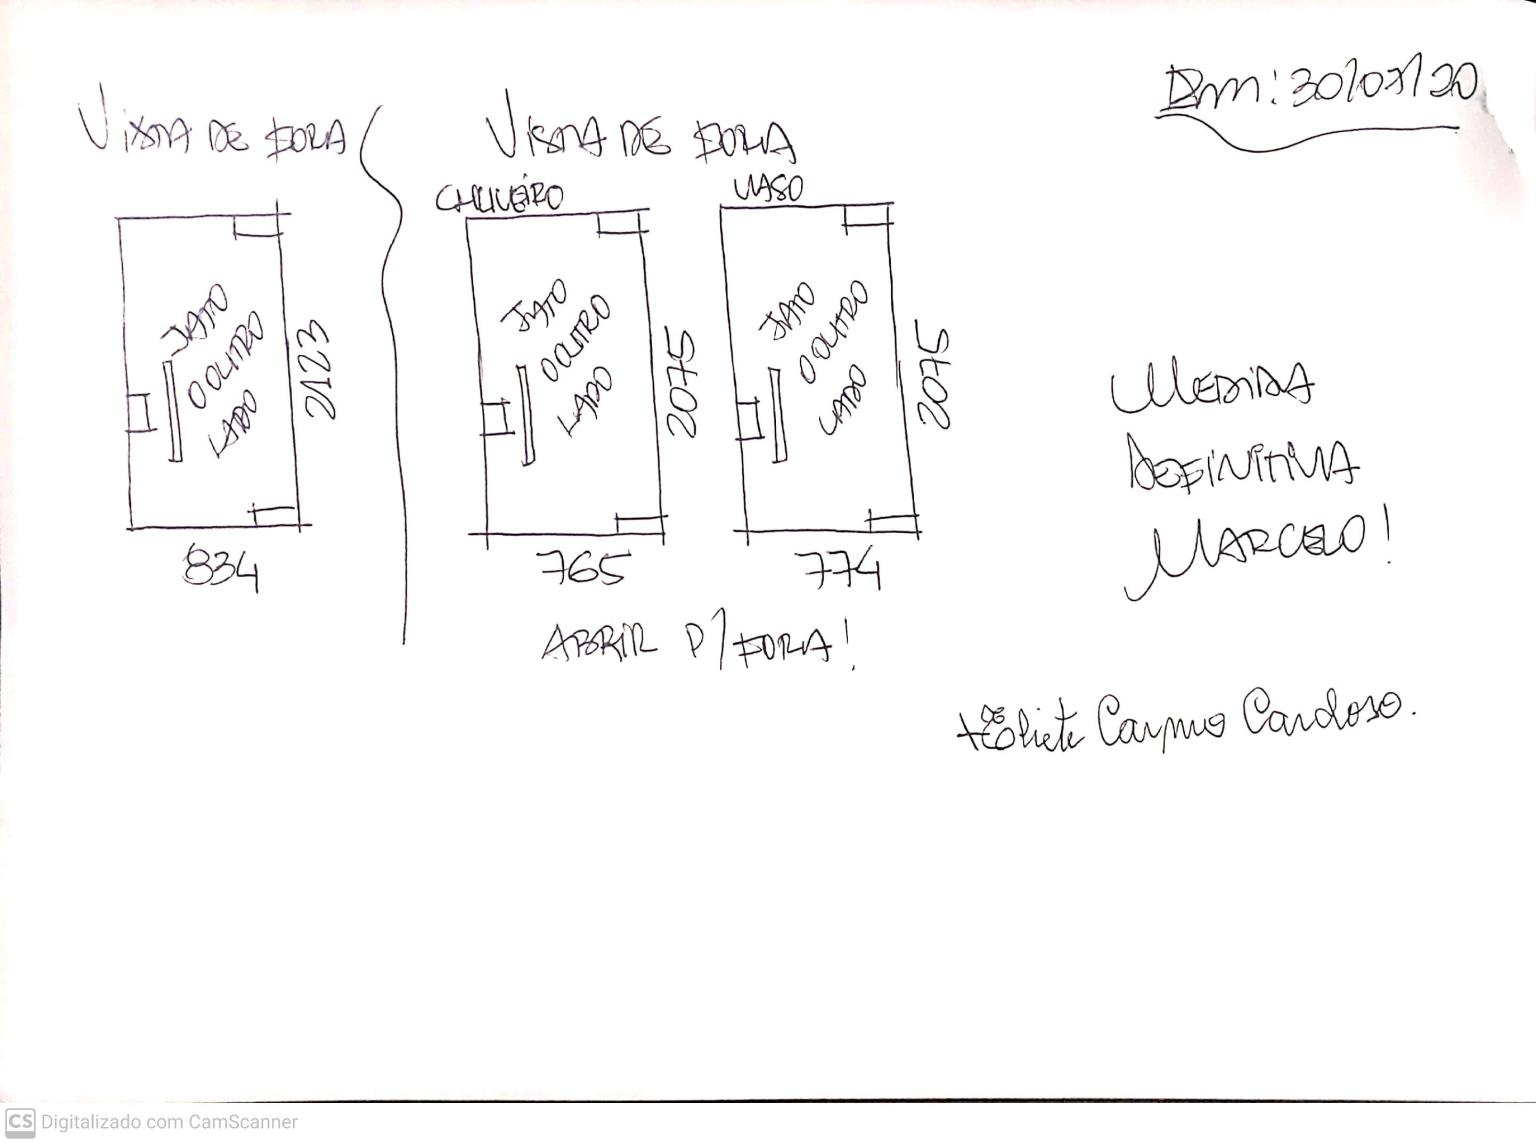 30/07/20
VISTA DE FORA
VISTA DE FORA
CHUVEIRO
VASO
JATO
O OUTRO
LADO
2123
834
JATO
O OUTRO
LADO
2075
765
JATO
O OUTRO
LADO
2075
774
ABRIR P/ FORA!
MEDIDA
DEFINITIVA
MARCELO!
Eliete Carmo Cardoso.
CS Digitalizado com CamScanner